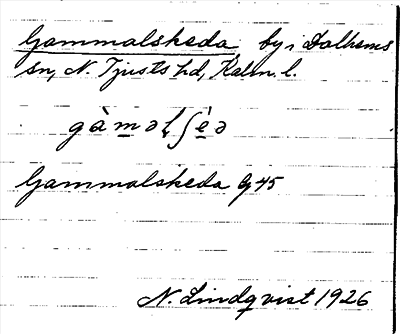 Gammalskeda by i Dalhems
sn, N. Tjusts hd, Kalm. l.
gàməlʃèə
Gammalskeda Gj 45
N. Lindqvist 1926